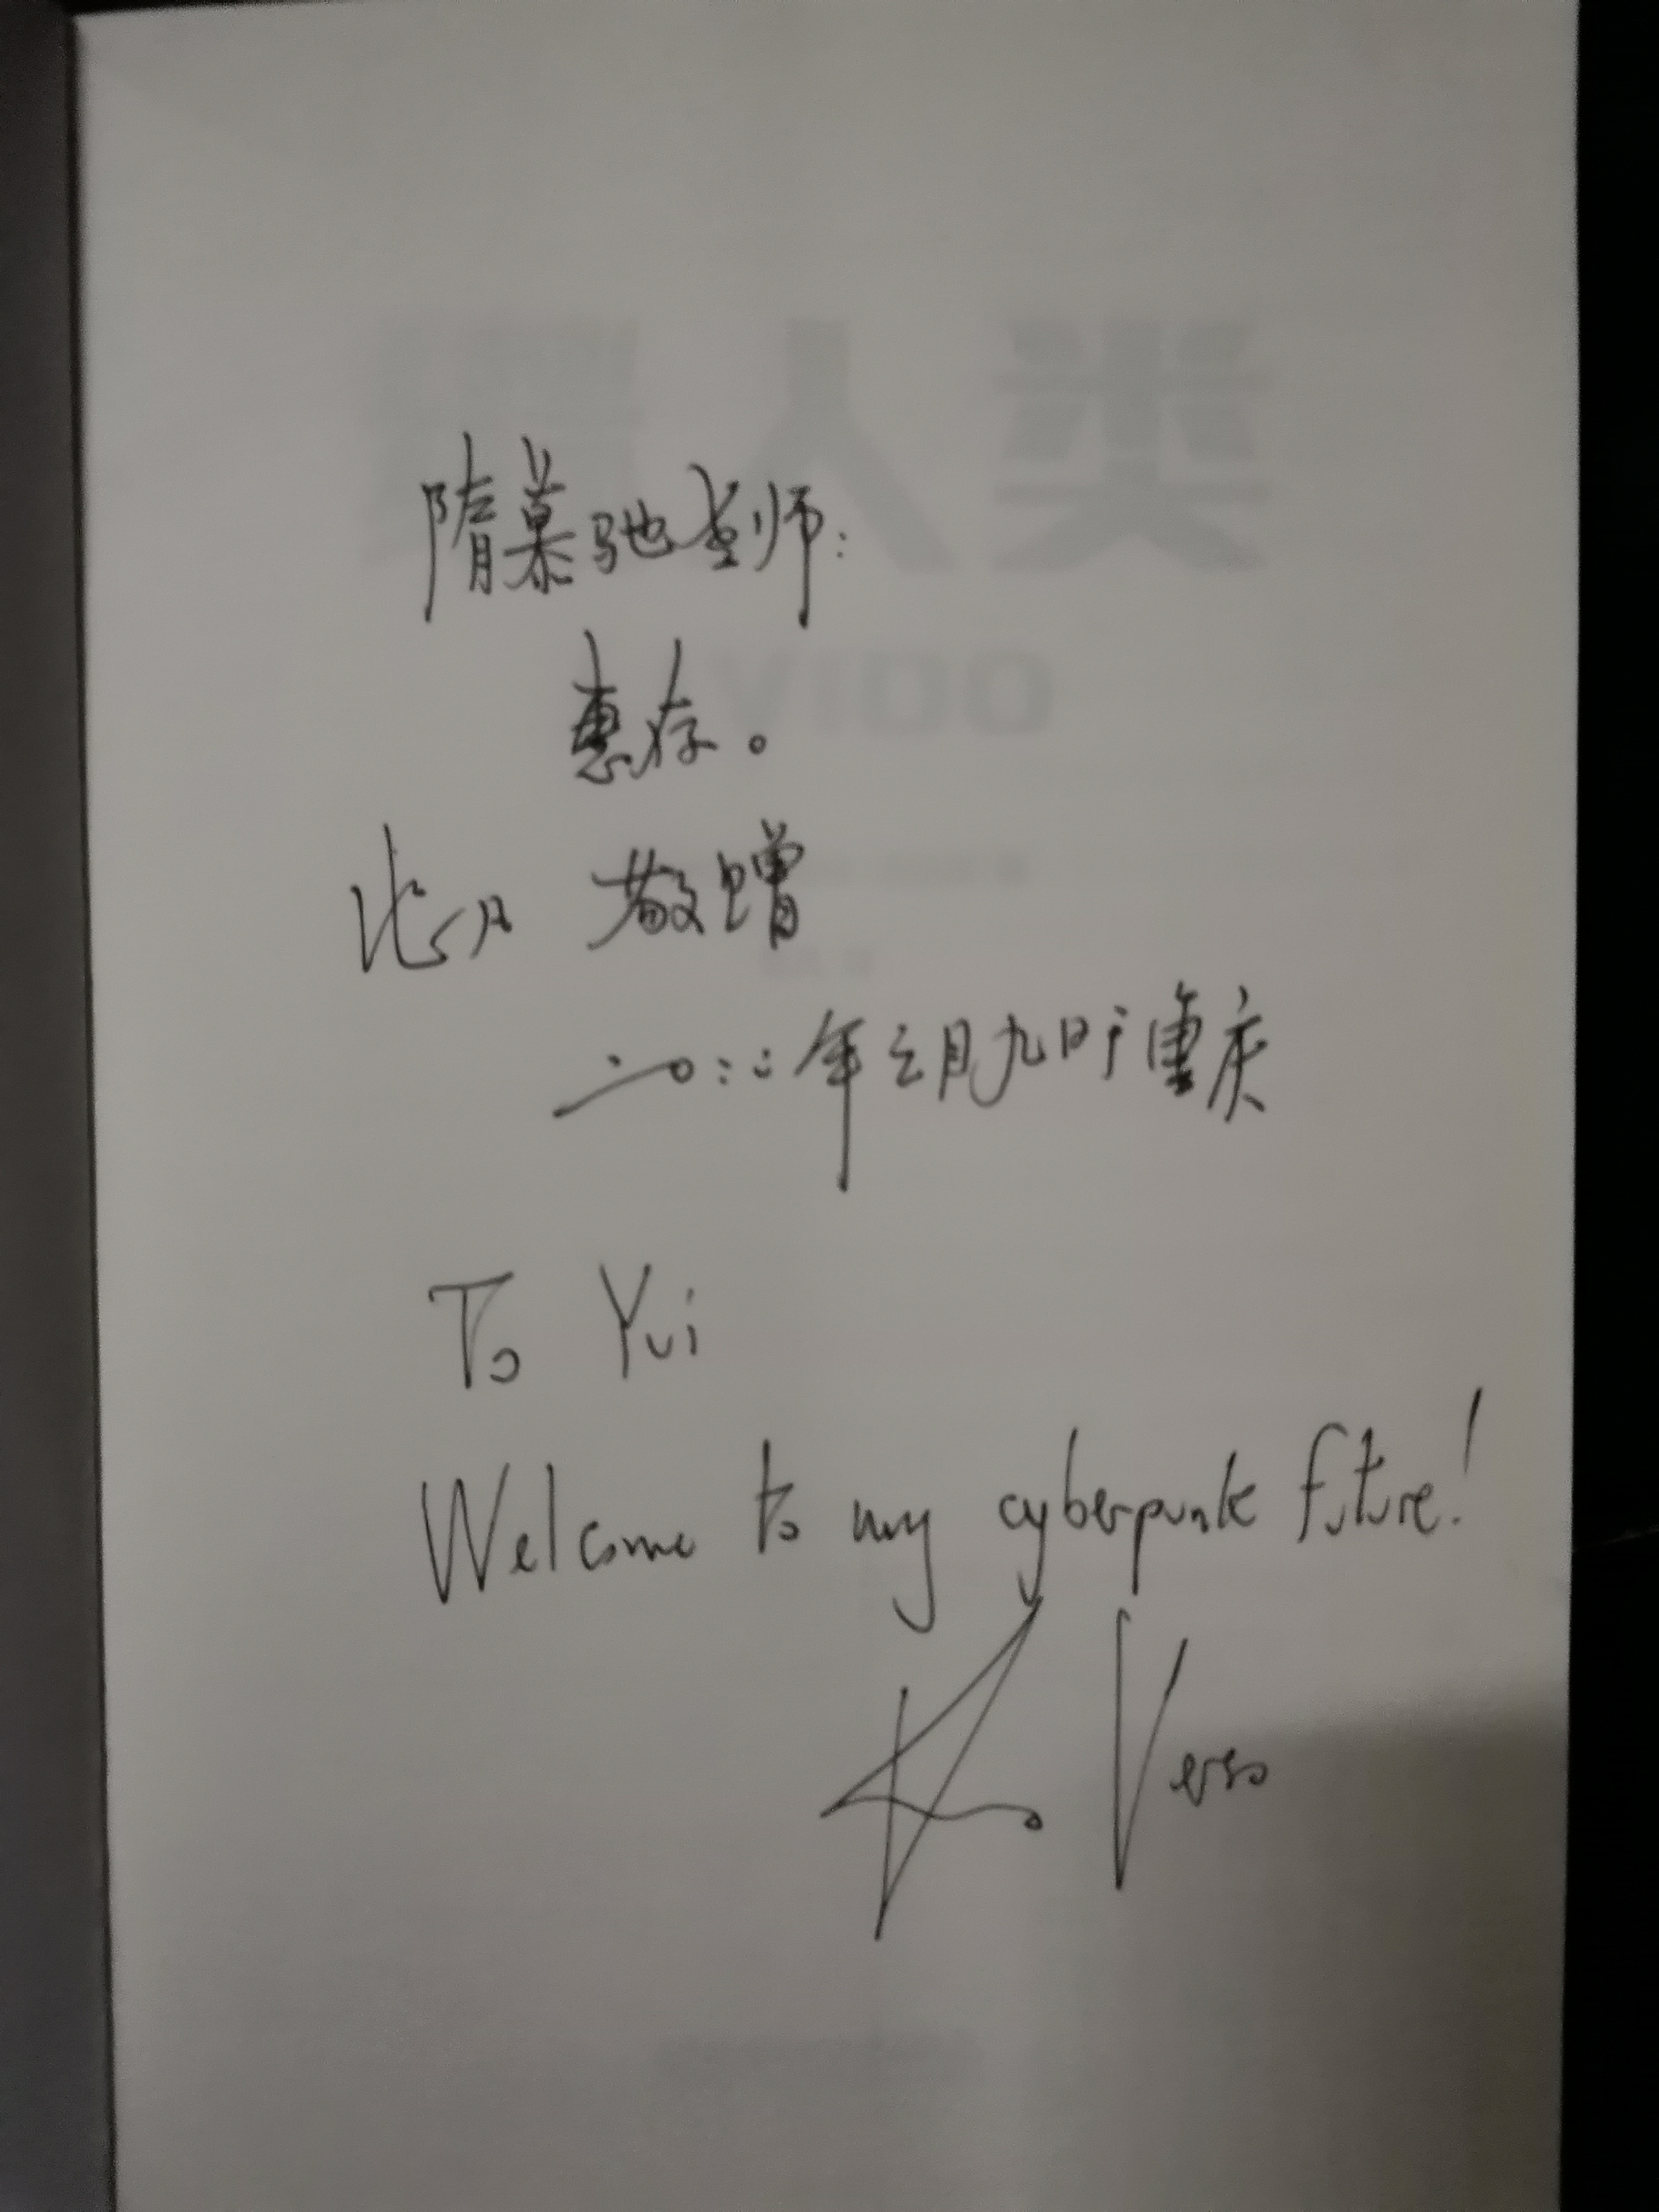 隋慕驰老师:
惠存。
敬赠
二〇二三年三月九日于重庆
To Yui
Welcome to my cyberpunk future!
Verso